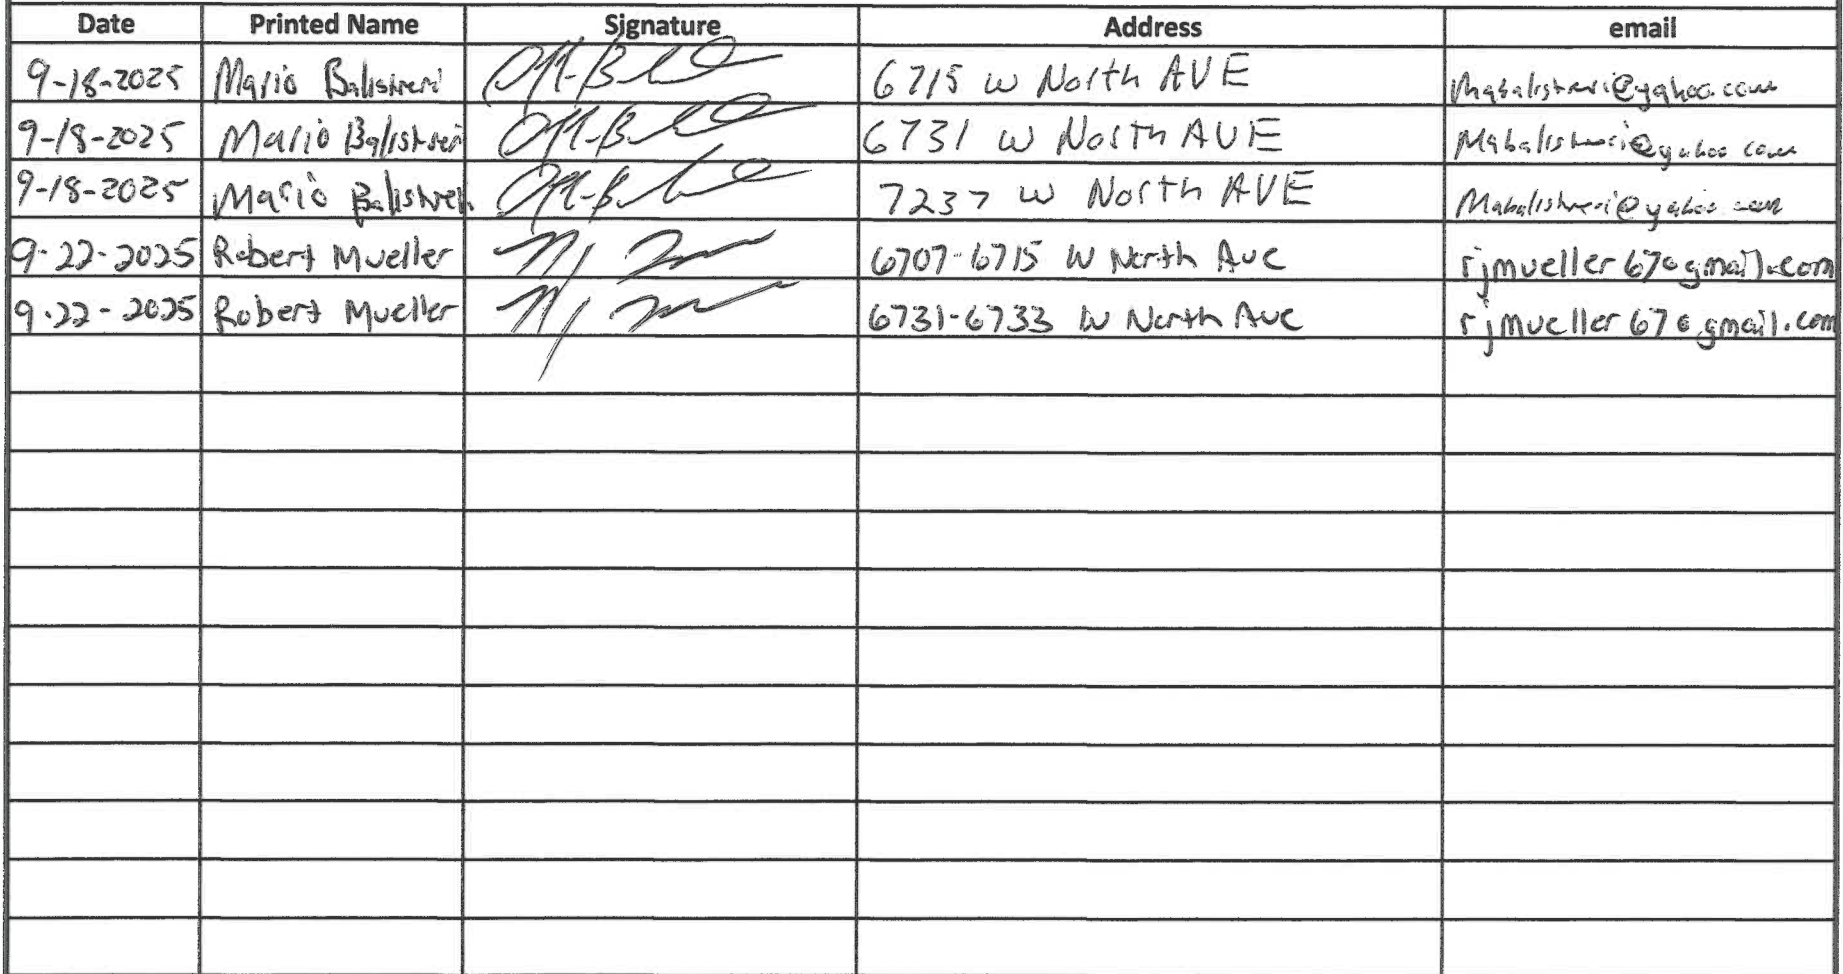 Date Printed Name Signature Address email
9-18-2025 Mario Balistreri 6715 W North AVE Mabalistreri@yahoo.com
9-18-2025 Mario Balistreri 6731 W North AVE Mabalistreri@yahoo.com
9-18-2025 Mario Balistreri 7237 W North AVE Mabalistreri@yahoo.com
9-22-2025 Robert Mueller 6707-6715 W North Ave rjmueller67@gmail.com
9-22-2025 Robert Mueller 6731-6733 W North Ave rjmueller67@gmail.com